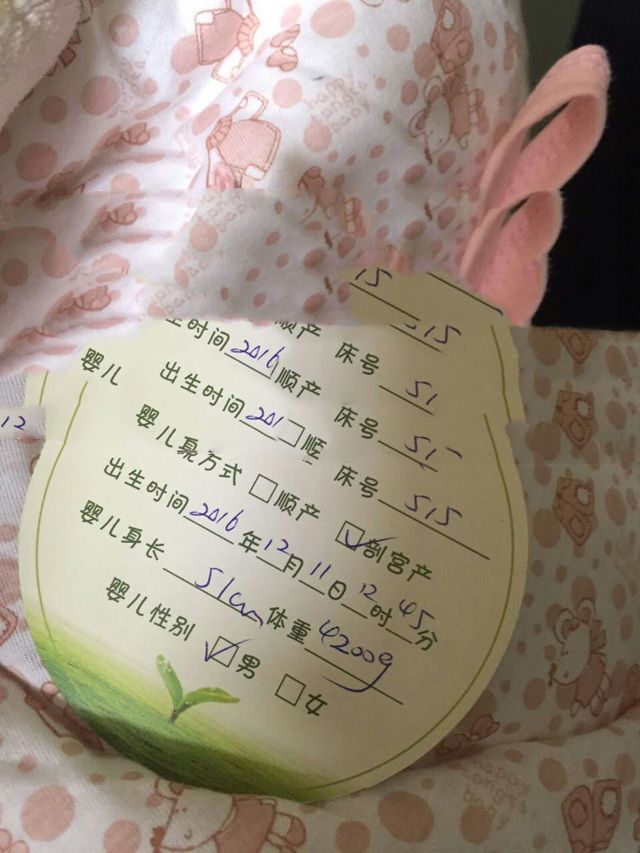 15
515
生时间2016 顺产 床号 51
婴儿 出生时间201 床号 51
12
床号 515
婴儿 方式 □顺产 ☑剖宫产
出生时间2016年12月11日12时45分
婴儿身长 51cm 体重4200g
婴儿性别 ☑男 □女